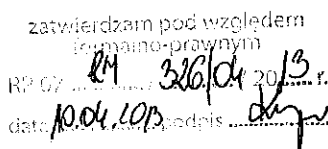 zatwierdzam pod względem
formalno-prawnym
RP 07 RM 326/04 / 2013 r.
data 10.04.2013 podpis